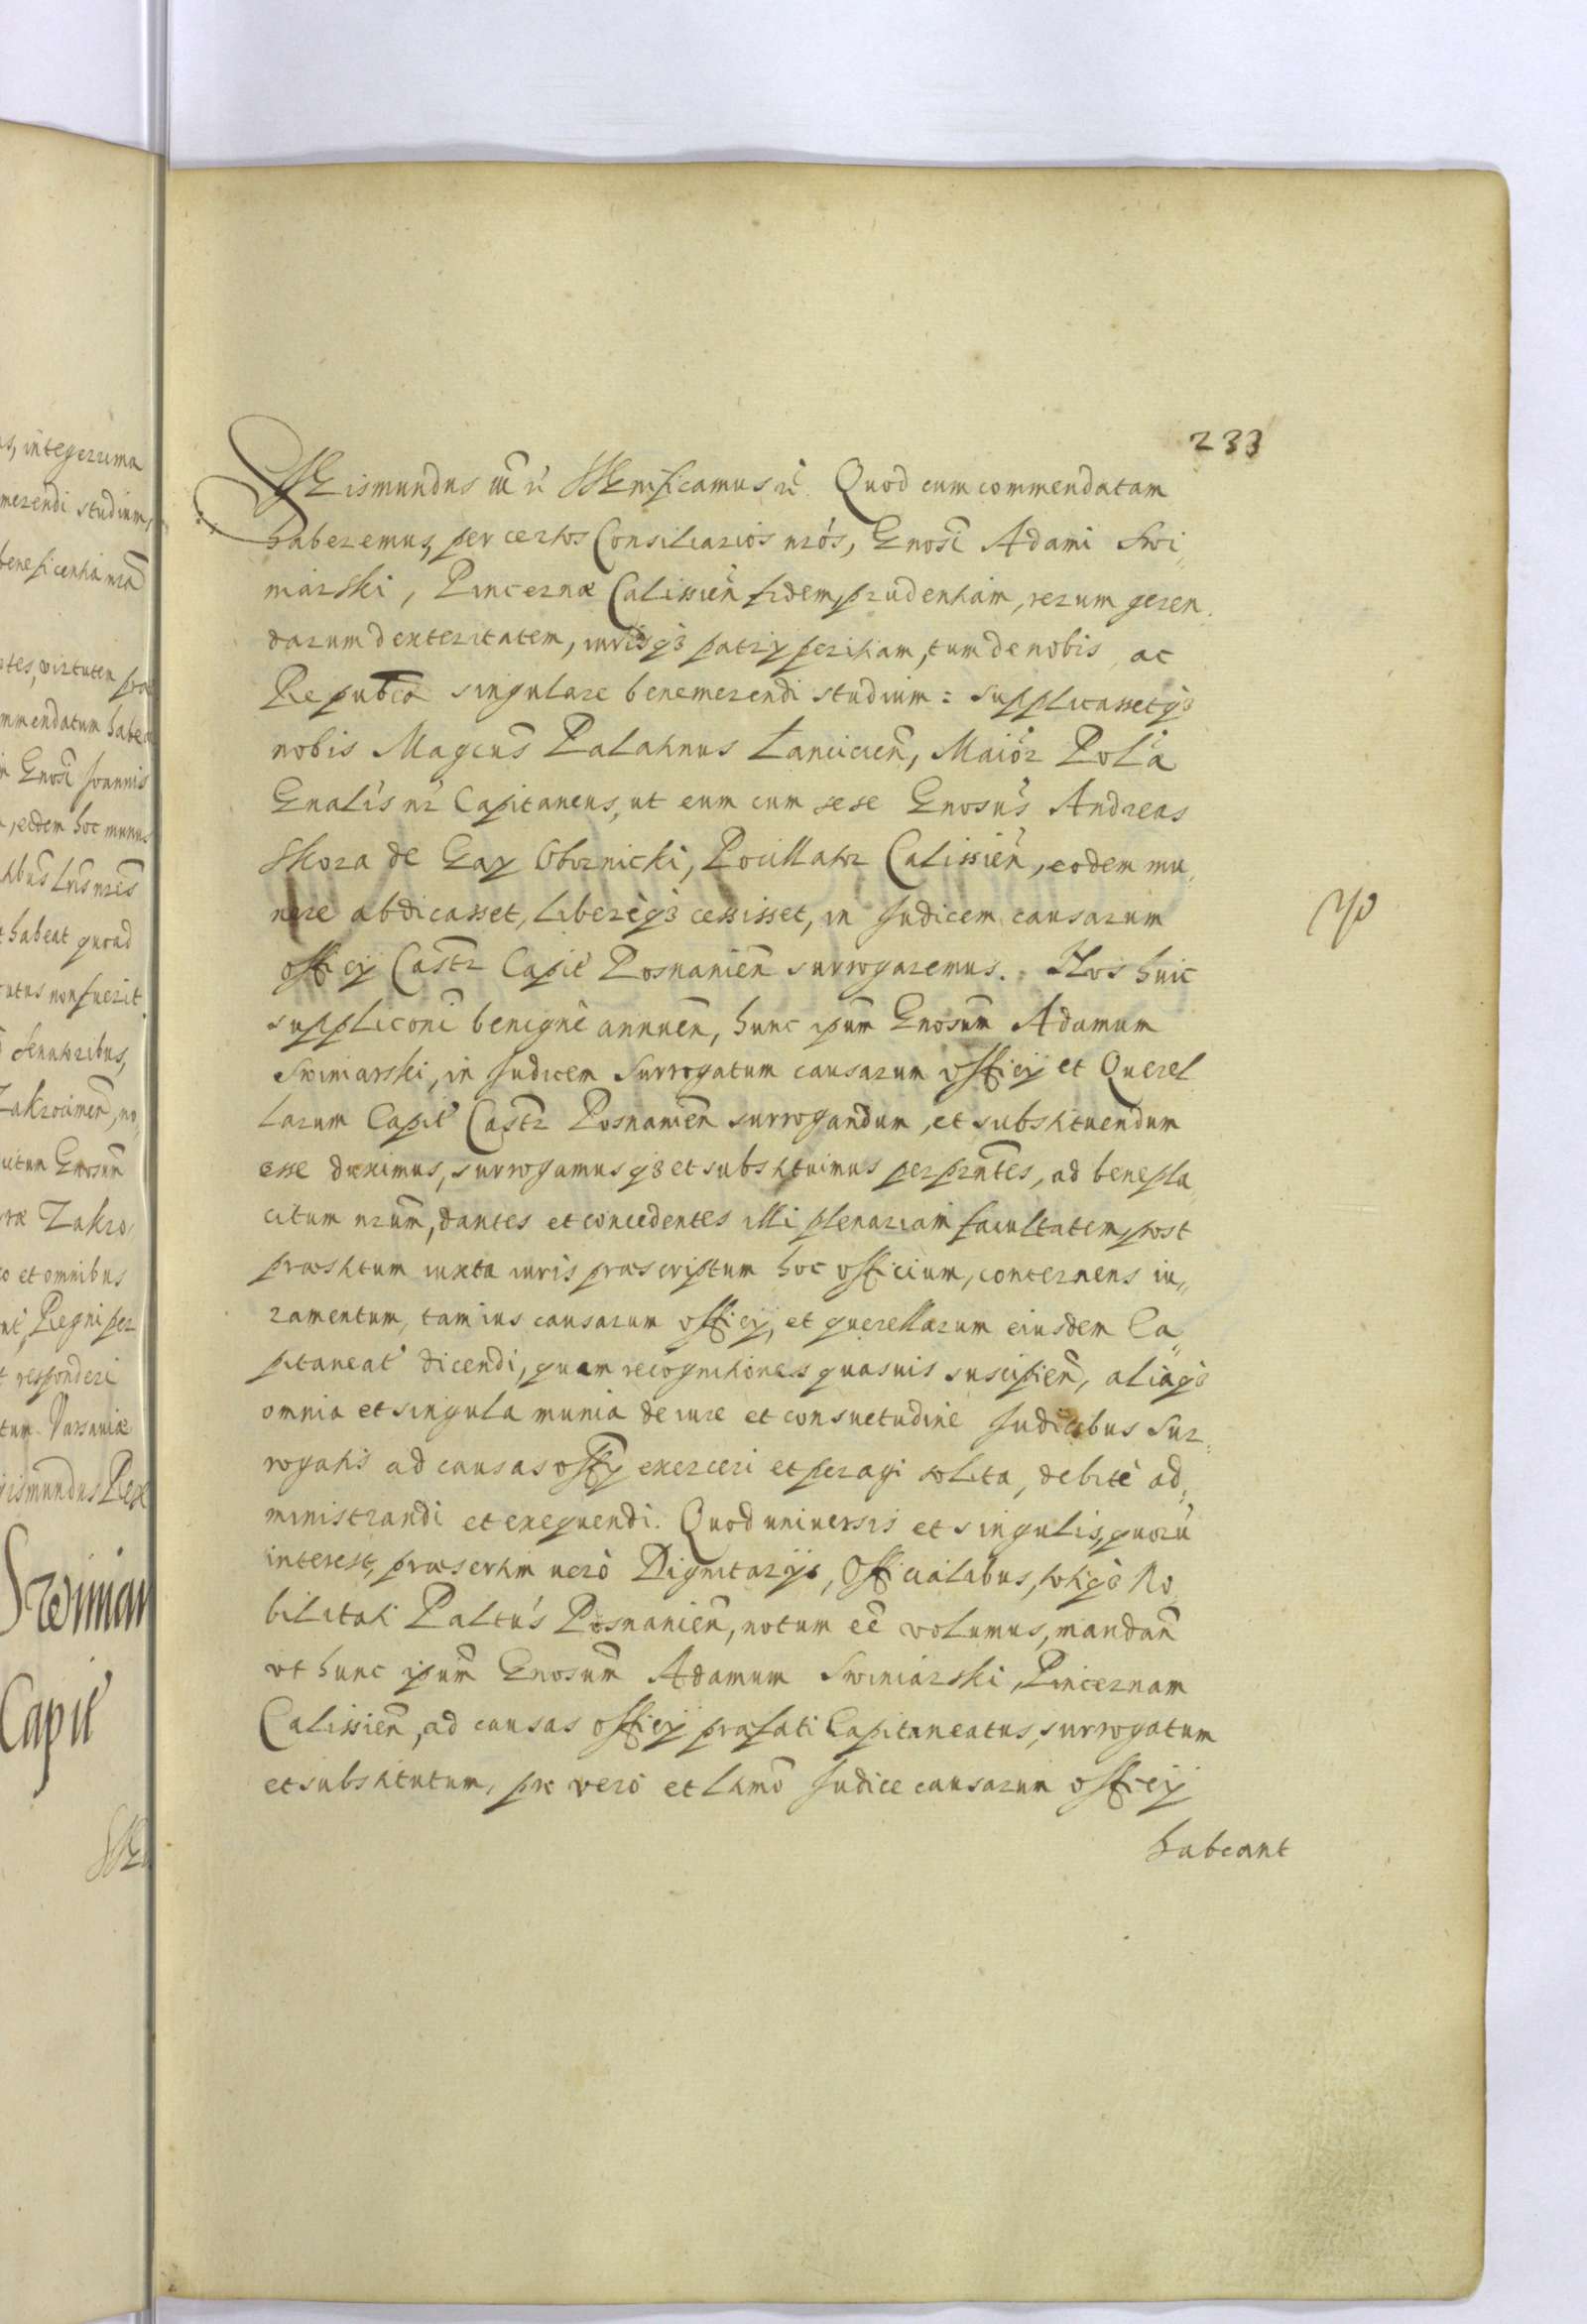 233
Sigismundus III etc. Significamus etc. Quod cum commendatam
haberemus, per certos Consiliarios nrós, Gnosi Adami Swi„
niarski, Pincernæ Calissien̄ fidem, prudentiam, rerum geren„
darum dexteritatem, iurisq3 patrij peritiam, tum de nobis ac
Repubca singulare benemerendi studium: supplicassetq3
nobis Magcus Palatinus Lancicien̄, Maior Pola
Gnalis nr Capitaneus, ut eum cum sese Gnosus Andreas
Skora de Gay Obornicki, Pocillator Calissien̄, eodem mu„
nere abdicasset, liberèq3 cessisset, in Judicem causarum
officij Castr Capit Posnanien̄ surrogaremus. Nos huic
suppliconi benignè annuen̄, hunc ipum̄ Gnosum̄ Adamum
Swiniarski, in Judicem Surrogatum causarum officij et Querel
larum Capit Castr Posnanien̄ surrogandum, et substituendum
esse duximus, surrogamusq3 et substituimus per prntes, ad benepla„
citum nrum̄, dantes et concedentes illi plenariam facultatem, post
præstitum iuxta iuris præscriptum hoc officium, concernens iu„
ramentum, tam ius causarum officij, et querellarum eiusdem Ca„
pitaneat dicendi, quam recognitiones quasuis suscipien̄, aliaq3
omnia et singula munia de iure et consuetudine Judicibus Sur„
rogatis ad causas officij exerceri et peragi solita, debitè ad„
ministrandi et exequendi. Quod uniuersis et singulis, quorū
interest, præsertim uerò Dignitarijs, Officialibus, totiq3 No„
bilitati Paltus Posnanien̄, notum eē volumus, mandan̄
vt hunc ipum̄ Gnosum̄ Adamum Swiniarski, Pincernam
Calissien̄, ad causas officij præfati Capitaneatus, surrogatum
et substitutum, pro vero et ltimo Judice causarum officij
habeant